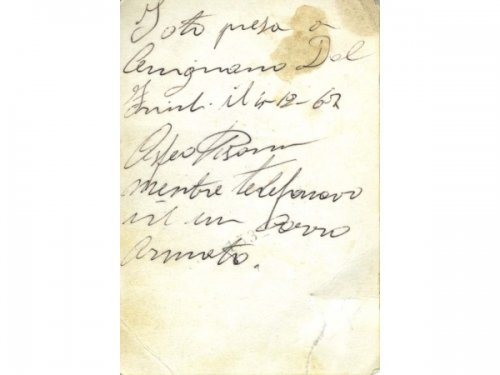 Foto presa a
Cervignano Del
Friul. il 4-12-62
Pisani
mentre telefonavo
in un carro
armato.